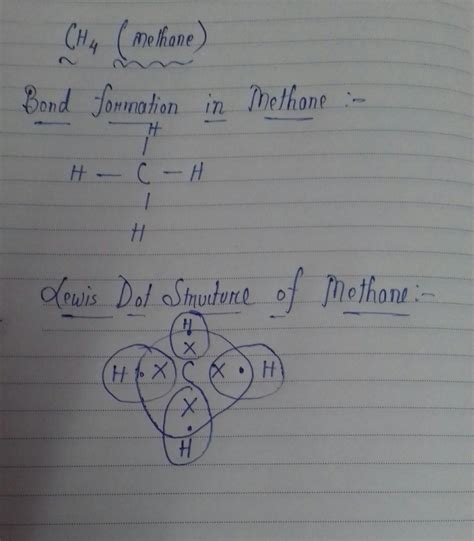 CH4 (methane)
Bond formation in Methane :-
H
H — C — H
H
Lewis Dot Structure of Methane:-
H
X
H • X C X • H
X
•
H